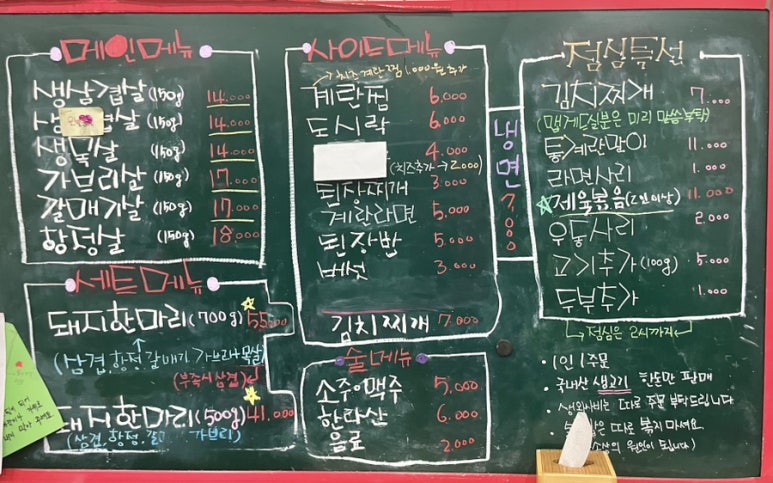 메인메뉴
생삼겹살 (150g) 14.000
(150g) 14.000
생목살 (150g) 14.000
가브리살 (150g) 17.000
갈매기살 (150g) 17.000
항정살 (150g) 18.000
세트메뉴
돼지한마리 (700g) 55.000
(삼겹, 항정, 갈매기, 가브리+목살)
(부족시 삼겹)
돼지한마리 (500g) 41.000
(삼겹, 항정, 갈 가브리)
사이드메뉴
→ 치즈계란찜 1,000원 추가
계란찜 6.000
도시락 6.000
4.000
(치즈추가 → 2000)
된장찌개 3.000
계란라면 5.000
된장밥 5.000
버섯 3.000
김치찌개 7.000
냉면 7000
술메뉴
소주o맥주 5.000
한라산 6.000
음료 2.000
점심특선
김치찌개 7.000
(맵게드실분은 미리 말씀부탁)
통계란말이 11.000
라면사리
☆제육볶음 (2인이상) 11.000
우동사리 2.000
고기추가 (100g) 5.000
두부추가 1.000
점심은 2시까지
• 1인 1주문
• 국내산 생고기 한돈만 판매
따로 주문 부탁드립니다
따로 볶지 마세요.
원인이 됩니다)